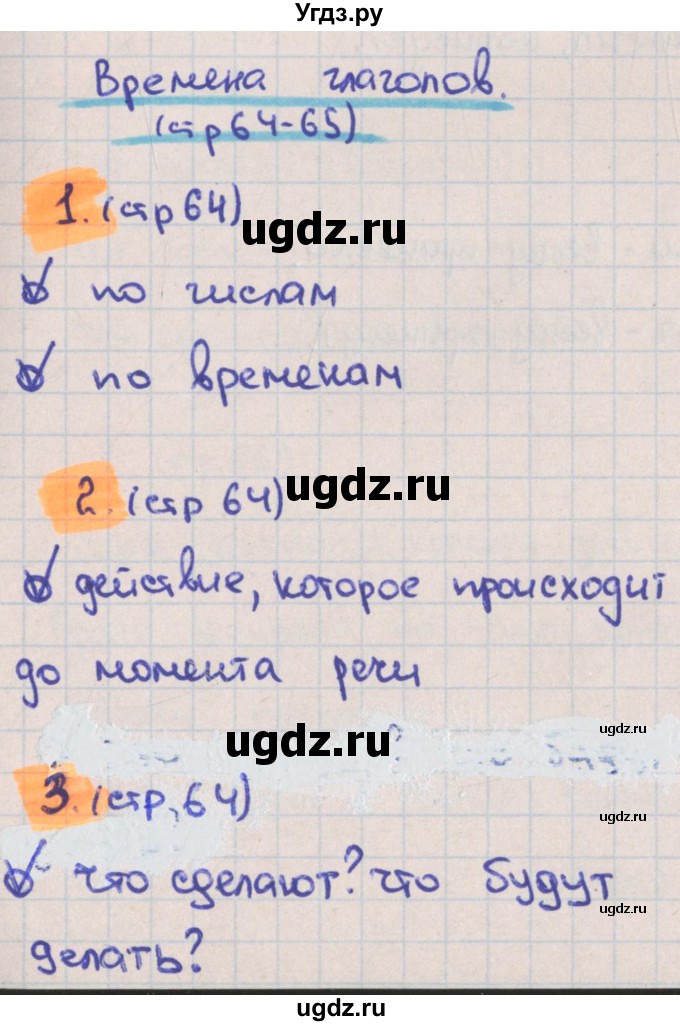 Угдз.ру
Времена глаголов.
(стр 64-65)
1. (стр 64)
ugdz.ru
по числам
по временам
2. (стр 64)
ugdz.ru
действие, которое происходит
до момента речи
ugdz.ru
ugdz.ru
3. (стр, 64)
ugdz.ru
что сделают? что будут
ugdz.ru
делать?
ugdz.ru